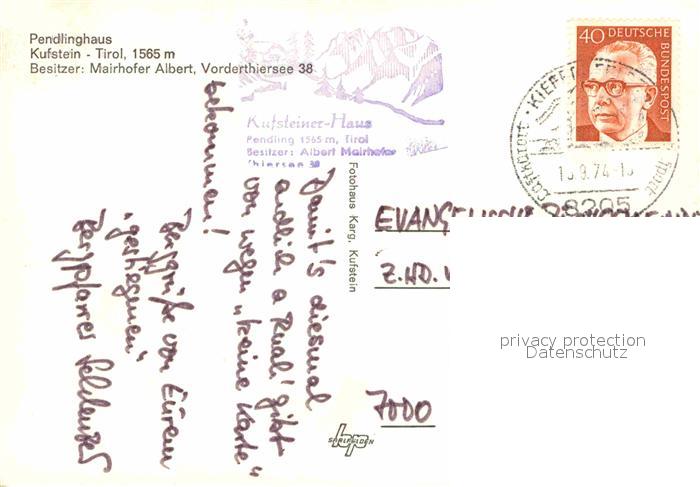 Pendlinghaus
Kufstein - Tirol, 1565 m
Besitzer: Mairhofer Albert, Vorderthiersee 38
Kufsteiner-Haus
Pendling 1565 m, Tirol
Besitzer: Albert Mairhofer
Thiersee 38
40 DEUTSCHE
BUNDESPOST
KIEFERSFELDEN
8205
Fotohaus Karg, Kufstein
EVANGELISCHE
Z.HD.
7000
Damit's diesmal
endlich a Ruah' gibt
von wegen "keine Karte"
bekommen!
Berggrüße von Eurem
"gestiegenen"
Bergpfarrer
privacy protection
Datenschutz